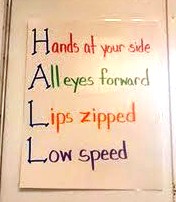 Hands at your side
All eyes forward
Lips zipped
Low speed